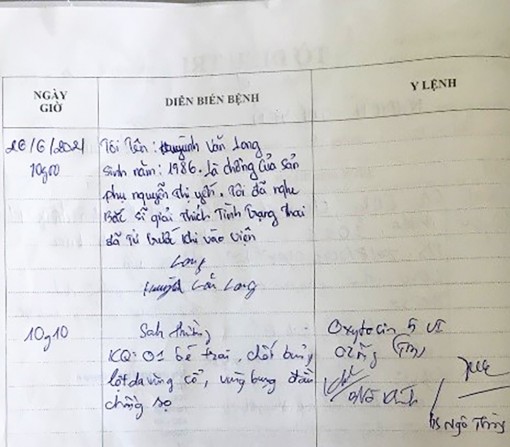 NGÀY GIỜ
DIỄN BIẾN BỆNH
Y LỆNH
26/6/2021
10g00
Tôi Tên: Huỳnh Văn Long
Sinh năm: 1986. Là chồng của sản
phụ nguyễn thị yến. Tôi đã nghe
Bác sĩ giải thích Tình Trạng thai
đã Tử trước khi vào viện
Long
Huỳnh Văn Long
10g10
Sanh thường
KQ: 01 bé trai, chết
lột da vùng cổ, vùng bụng, đầu
chồng sọ
Oxytocin 5 UI
02 ống (TB)
BS Ngô